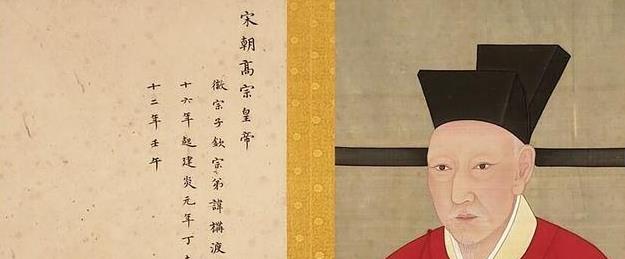 宋朝髙宗皇帝
徽宗子欽宗弟諱構渡
十六年起建炎元年丁
十二年壬午